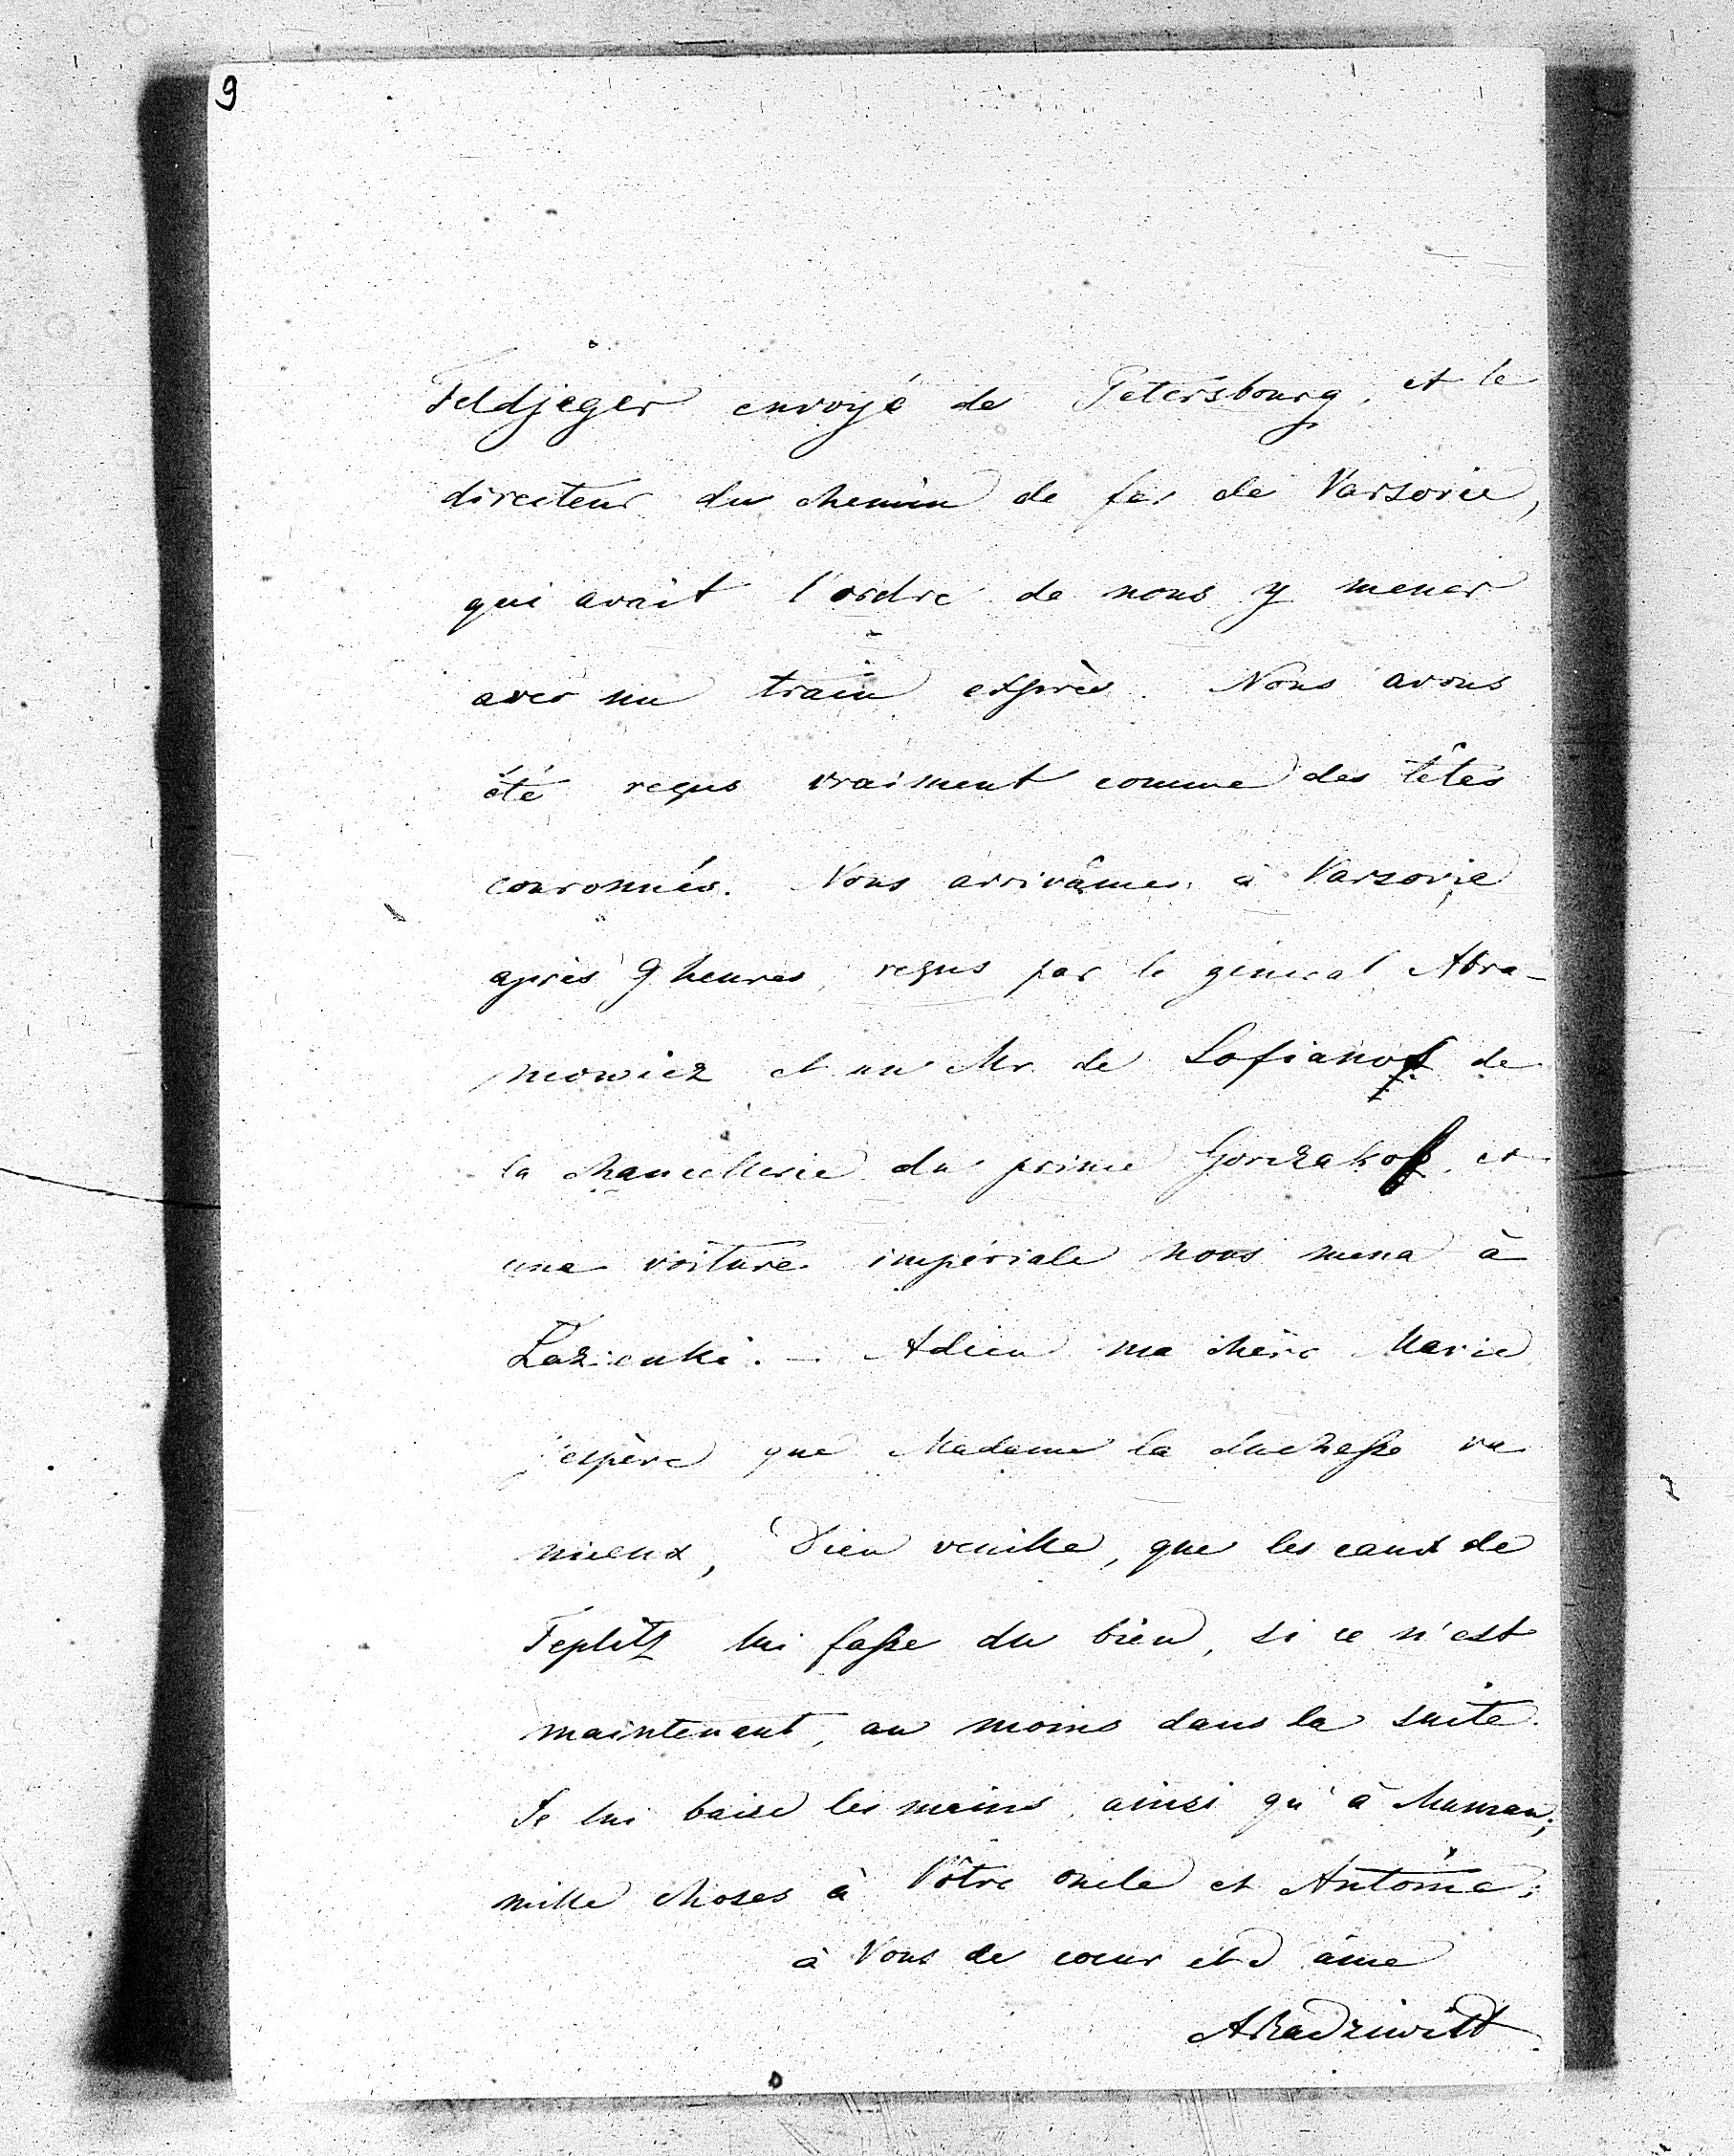 9
Feldjeger envoyé de Petersbourg, et le
directeur du chemin de fer de Varsovie,
qui avait l'ordre de nous y mener
avec un train exprès. Nous avons
été reçus vraiment comme des têtes
couronnés. Nous arrivâmes à Varsovie
après 9 heures, reçus par le général Abra-
mowicz et un Mr de Lofianof de
la chancellerie du prince Gorczakof, et
une voiture impériale nous mena à
Łazienki. — Adieu ma chère Marie
j'espère que Madame la duchesse va
mieux, Dieu veuille, que les eaux de
Teplitz lui fasse du bien, si ce n'est
maintenant, au moins dans la suite.
Je lui baise les mains, ainsi qu'à Maman;
mille choses à Vôtre oncle et Antoine;
à Vous de coeur et d'âme
ARadziwiłł